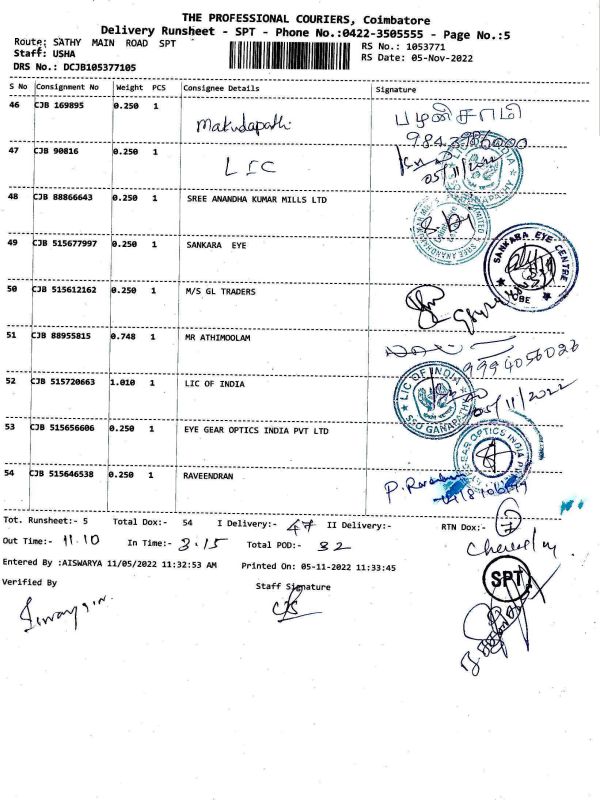 THE PROFESSIONAL COURIERS, Coimbatore
Delivery Runsheet - SPT - Phone No.:0422-3505555 - Page No.:5
Route: SATHY MAIN ROAD SPT
RS No.: 1053771
Staff: USHA
RS Date: 05-Nov-2022
DRS No.: DCJB105377105
S No Consignment No Weight PCS Consignee Details Signature
46 CJB 169895 0.250 1 Makudapathi பழனிசாமி
47 CJB 90816 0.250 1 LIC
05/11/2022
48 CJB 88866643 0.250 1 SREE ANANDHA KUMAR MILLS LTD
49 CJB 515677997 0.250 1 SANKARA EYE
SANKARA EYE CENTRE
50 CJB 515612162 0.250 1 M/S GL TRADERS
51 CJB 88955815 0.748 1 MR ATHIMOOLAM
9994056026
52 CJB 515720663 1.010 1 LIC OF INDIA
LIC OF INDIA
SSO GANAPATHY
05/11/2022
53 CJB 515656606 0.250 1 EYE GEAR OPTICS INDIA PVT LTD
GEAR OPTICS INDIA
54 CJB 515646538 0.250 1 RAVEENDRAN
Tot. Runsheet:- 5 Total Dox:- 54 I Delivery:- 47 II Delivery:- RTN Dox:- 7
Out Time:- 11.10 In Time:- 3.15 Total POD:- 32
Entered By :AISWARYA 11/05/2022 11:32:53 AM Printed On: 05-11-2022 11:33:45
SPT
Verified By Staff Signature